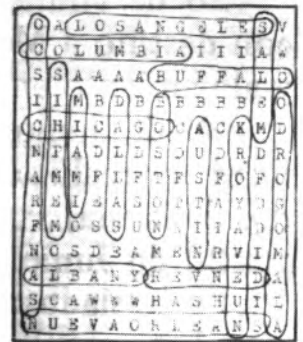 O A L O S A N G E L E S V
C O L U M B I A I I I A W
S S A A A A B U F F A L O
I I M B D B B B B B B E O
C H I C A G O C A C K M D
N T A D L L S D U D R D R
A M M F L F T F S F O F O
R E I E A S O T T A Y D G
F M O S S U N A I H A D O
N O S D E A M R N R V I M
A L B A N Y R E V N E D A
S C A W W W H A S H U I L
N U E V A O R L E A N S A